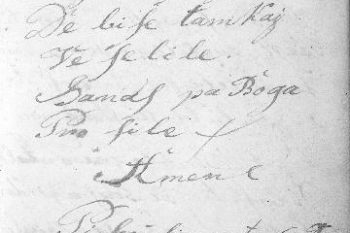 De bi se tam kaj
Ve se li le.
Gands pa Boga
Pro si le
Amen